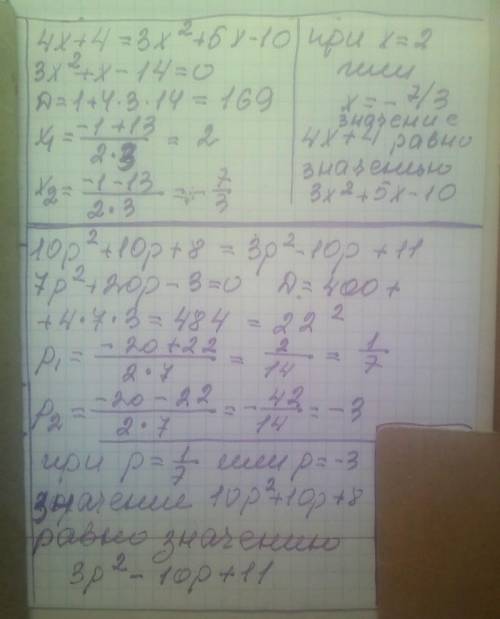 4x+4=3x²+5x-10
3x²+x-14=0
D=1+4·3·14=169
x₁=(-1+13)/(2·3)=2
x₂=(-1-13)/(2·3)=-7/3
при x=2
или
x=-7/3
значение
4x+4 равно
значению
3x²+5x-10
10p²+10p+8=3p²-10p+11
7p²+20p-3=0 D=400+
+4·7·3=484=22²
p₁=(-20+22)/(2·7)=2/14=1/7
p₂=(-20-22)/(2·7)=-42/14=-3
при p=1/7 или p=-3
значение 10p²+10p+8
равно значению
3p²-10p+11